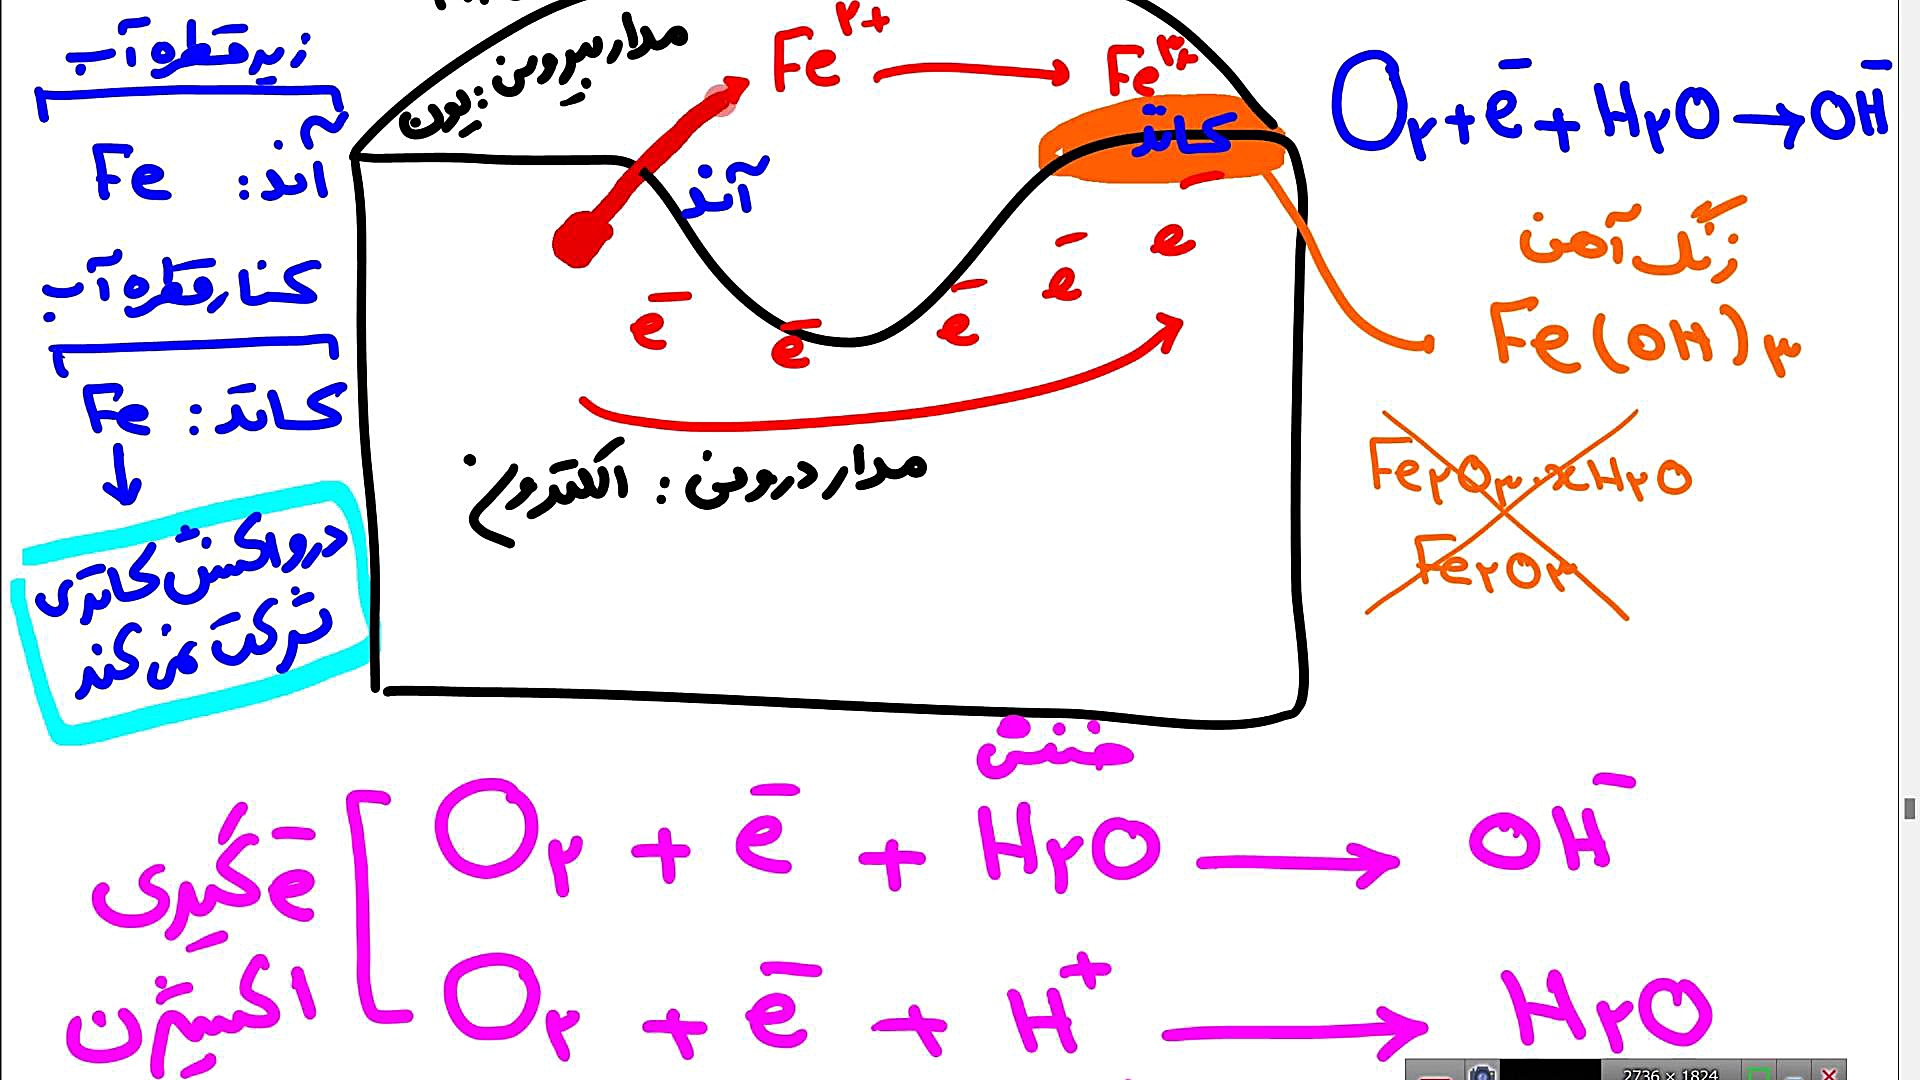 زیر قطره آب
آند: Fe
کنار قطره آب
کاتد: Fe
در واکنش کاتدی
شرکت نمی کند
مدار بیرونی: یون
Fe²⁺ → Fe³⁺
آند
کاتد
e⁻ e⁻ e⁻ e⁻ e⁻
مدار درونی: الکترون
O₂ + e⁻ + H₂O → OH⁻
زنگ آهن
Fe(OH)₃
Fe₂O₃.xH₂O
Fe₂O₃
خنثی
e⁻ گیری
اکسیژن
O₂ + e⁻ + H₂O → OH⁻
O₂ + e⁻ + H⁺ → H₂O
2736 × 1824